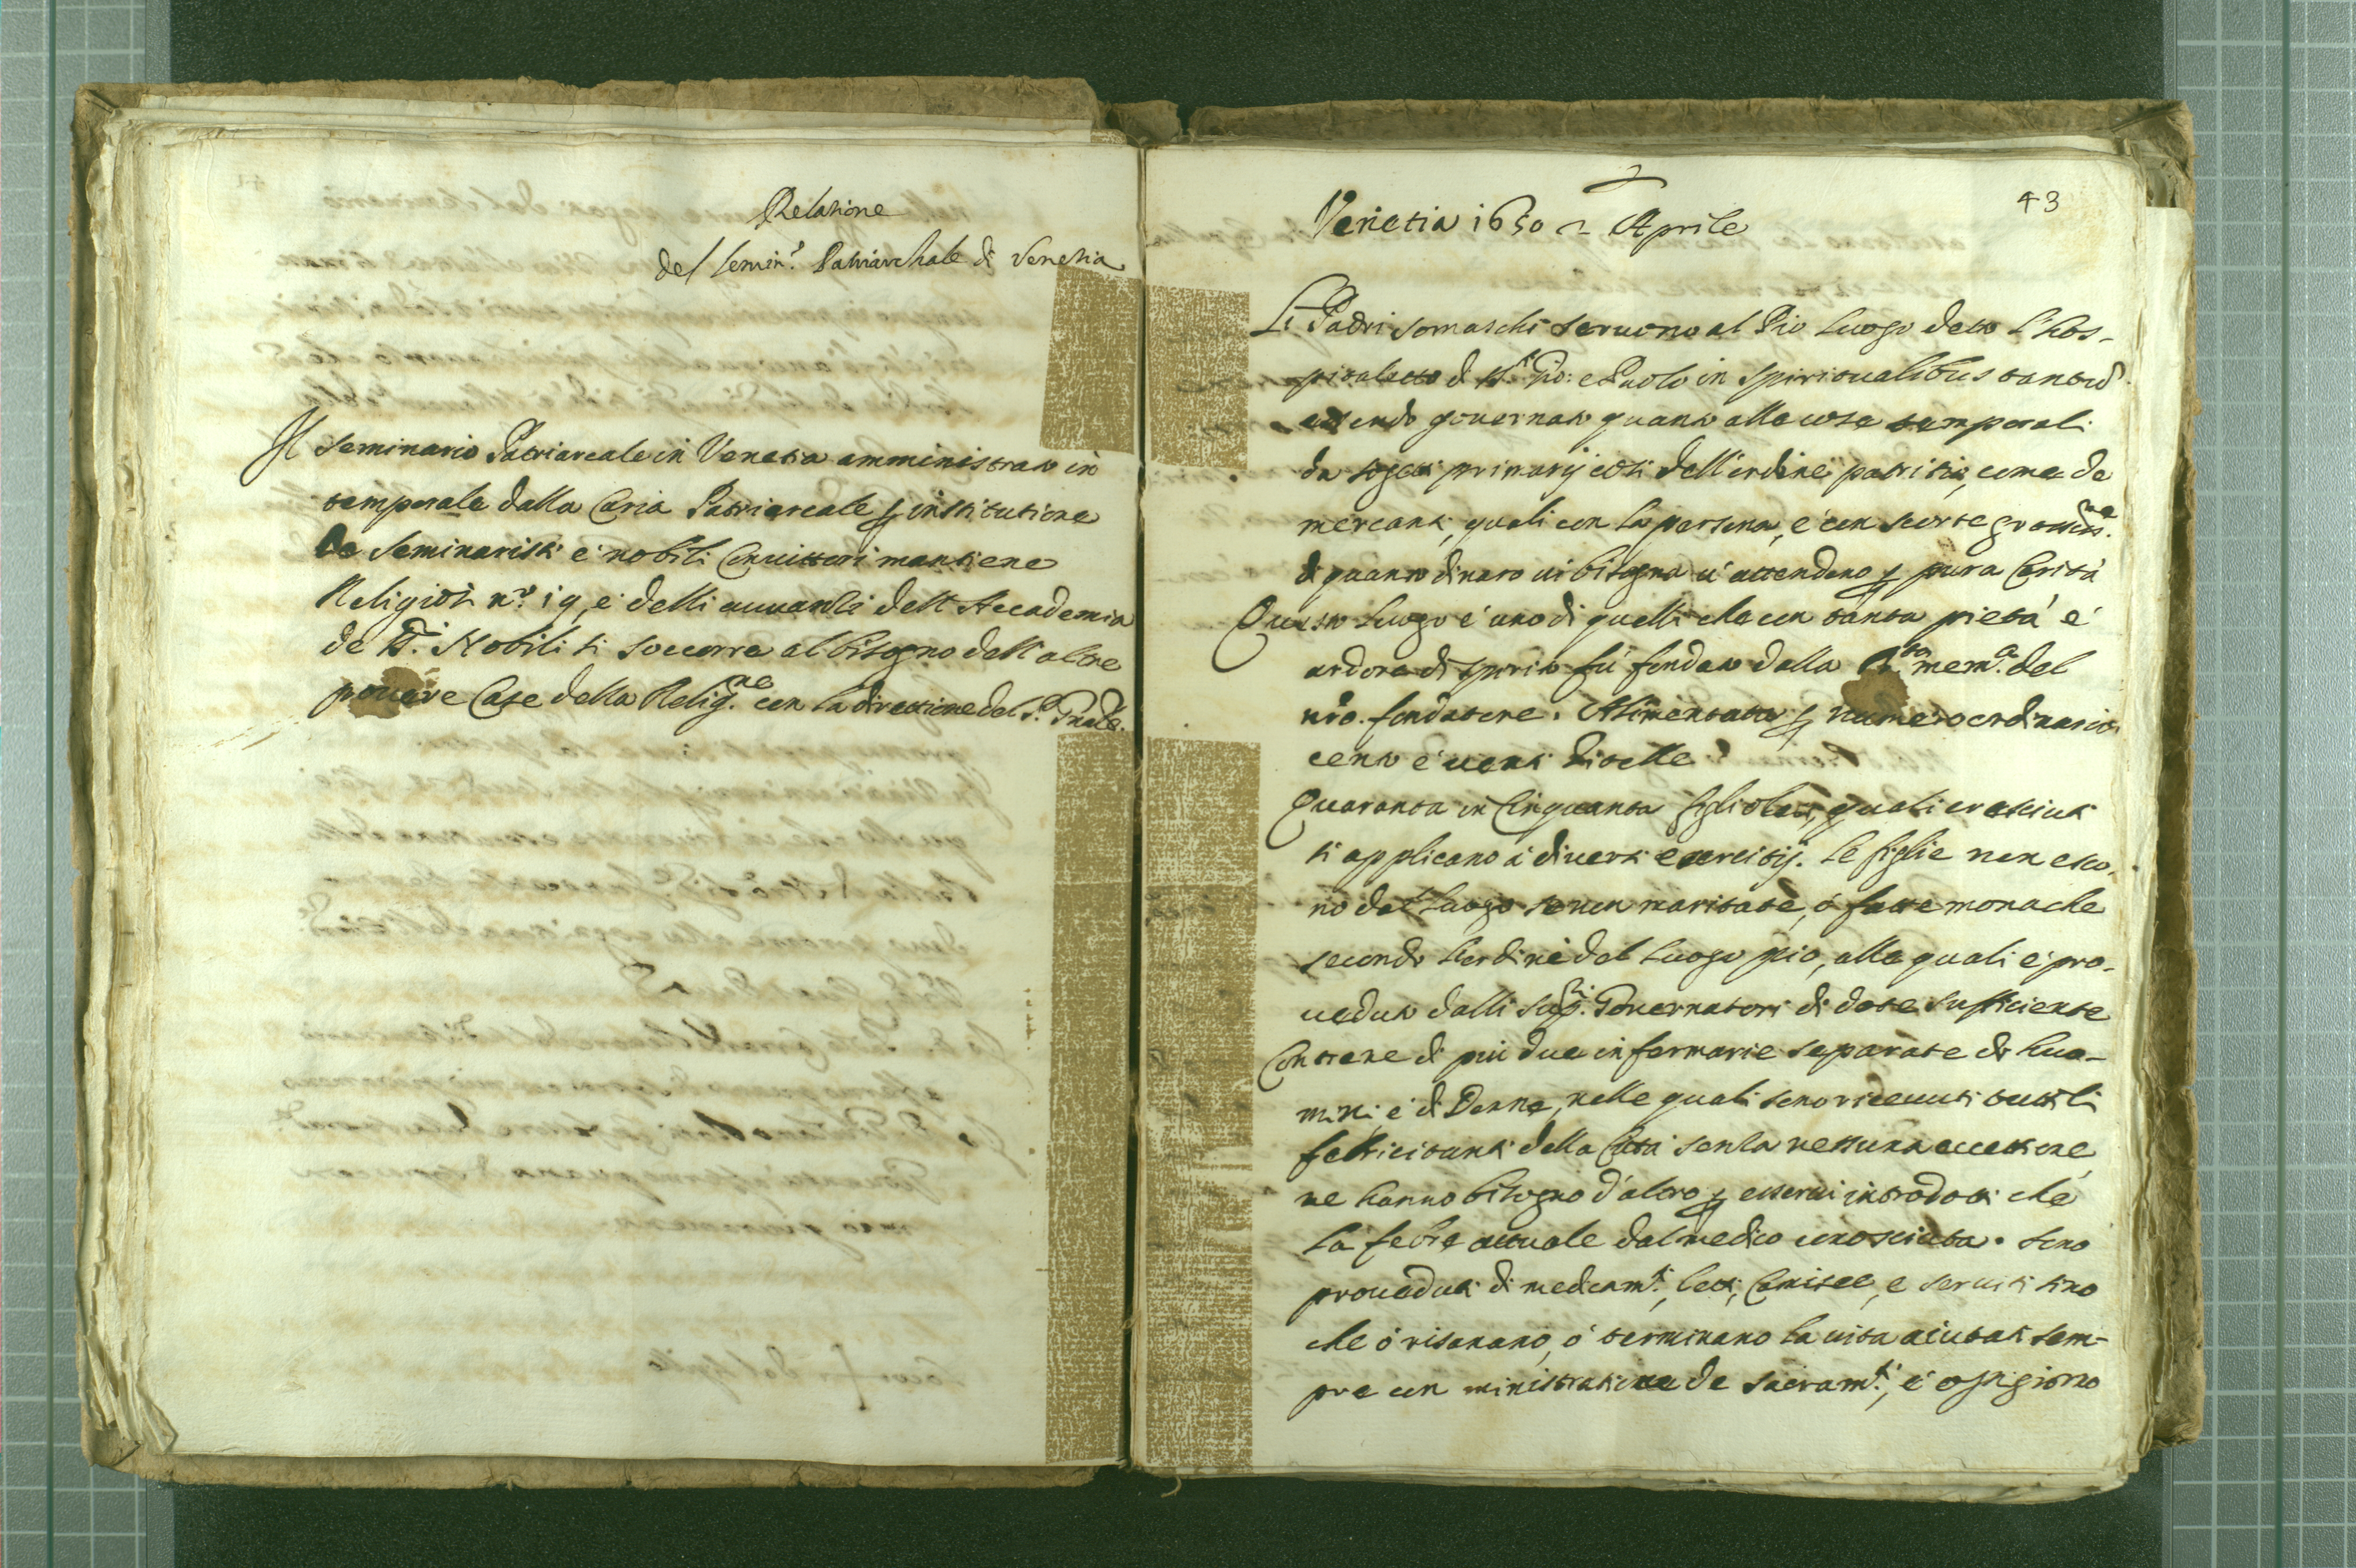 Relatione
del Semin.o Patriarchale di Venetia
Il Seminario Patriarcale in Venetia amministrato in
temporale dalla Curia Patriarcale p institutione
de Seminaristi e nobili Convittori mantiene
Religiosi n.o 19, e delli avvanzi dell Accademia
de Nobili si soccorre al bisogno dell altre
povere Case della Relig.ne con la direttione del P. Gnāle.
43
Venetia 1650 2 Aprile
Li Padri Somaschi servono al Pio luogo detto l'Hos-
pitaletto di Gio: e Paolo in spiritualibus tantū
essendo governato quanto alle cose temporali
da sogetti primarij così dell'ordine patritio, come de
mercanti, quali con la persona, e con scorte
di quanto dinaro vi bisogna vi attendono p pura Carità
Questo luogo è uno di quelli che con tanta pietà e
ardore di spirito fù fondato dalla mem.a del
nrō. fondatore. Alimentato p numero ordinario
cento e venti Zitelle
Quaranta in Cinquanta figlioli, quali cresciuti
si applicano à diversi esercitij. Le figlie non esco-
no dal luogo se non maritate, ò fatte monache
secondo l'ordine del luogo pio, alle quali è pro-
veduto dalli Governatori di dote sufficiente
Contiene di più due infermarie separate di huo-
mini e di Donne, nelle quali sono ricevuti tutti li
febricitanti della Città senza nessuna eccettione,
ne hanno bisogno d'altro p esservi introdotti che
la febre attuale dal medico conosciuta. sono
proveduti di medicam.ti, letti, Camisee, e serviti sino
che ò risanano, ò terminano la vita aiutati sem-
pre con ministratione de Sacram.ti, e ogni giorno